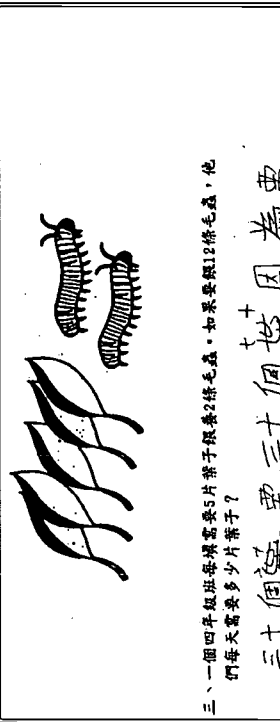 三、一個四年級班每塡需要5片葉子飼養2條毛蟲。如果要餵12條毛蟲，他
們每天需要多少片葉子？
三十個葉要三十個 因為要